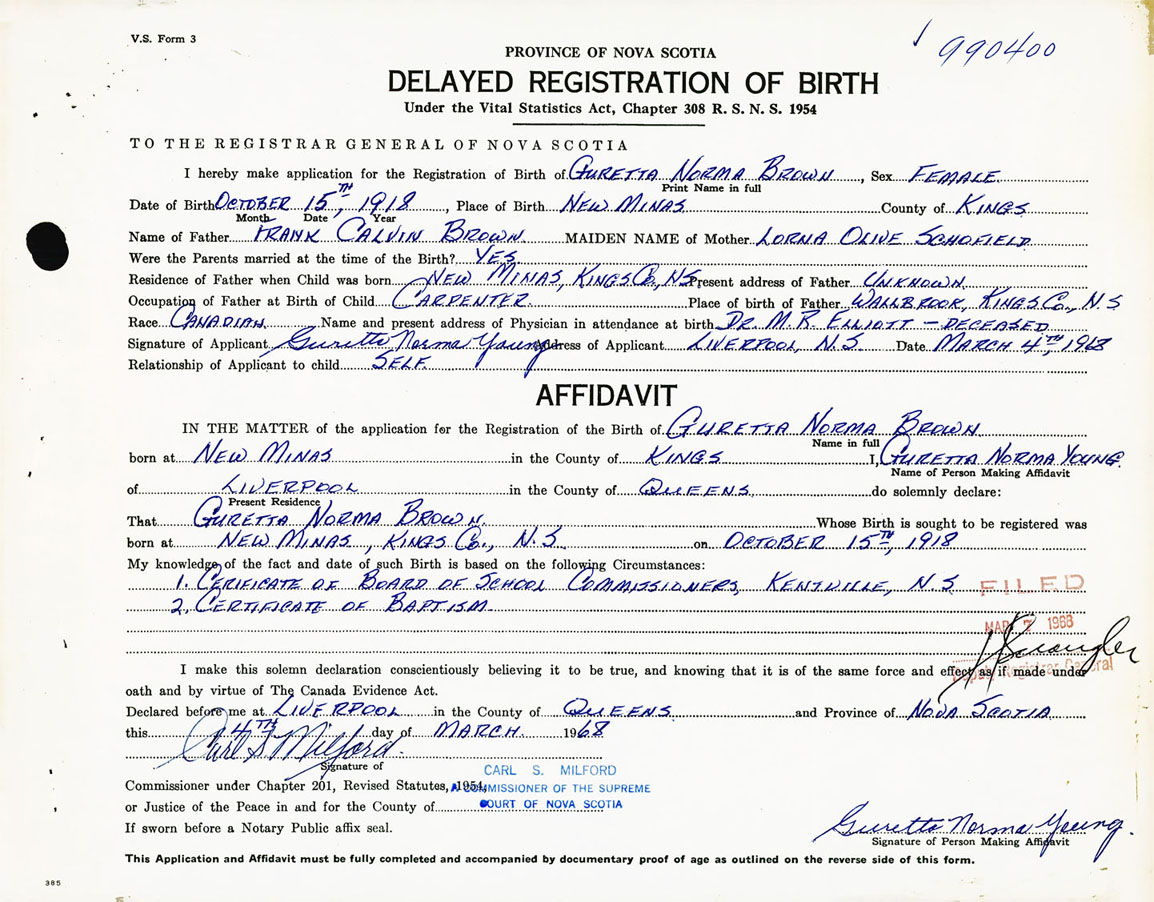 V.S. Form 3
990400
PROVINCE OF NOVA SCOTIA
DELAYED REGISTRATION OF BIRTH
Under the Vital Statistics Act, Chapter 308 R. S. N. S. 1954
TO THE REGISTRAR GENERAL OF NOVA SCOTIA
I hereby make application for the Registration of Birth of GURETTA NORMA BROWN, Sex FEMALE
Print Name in full
Date of Birth OCTOBER 15TH, 1918, Place of Birth NEW MINAS County of KINGS
Month Date Year
Name of Father FRANK CALVIN BROWN MAIDEN NAME of Mother LORNA OLIVE SCHOFIELD
Were the Parents married at the time of the Birth? YES
Residence of Father when Child was born NEW MINAS, KINGS CO., NS Present address of Father UNKNOWN
Occupation of Father at Birth of Child CARPENTER Place of birth of Father WALLBROOK, KINGS CO., N S
Race CANADIAN Name and present address of Physician in attendance at birth DR. M. R. ELLIOTT - DECEASED
Signature of Applicant Guretta Norma Young Address of Applicant LIVERPOOL, N.S. Date MARCH 4TH, 1968
Relationship of Applicant to child SELF
AFFIDAVIT
IN THE MATTER of the application for the Registration of the Birth of GURETTA NORMA BROWN
Name in full
born at NEW MINAS in the County of KINGS I, GURETTA NORMA YOUNG
Name of Person Making Affidavit
of LIVERPOOL in the County of QUEENS do solemnly declare:
Present Residence
That GURETTA NORMA BROWN Whose Birth is sought to be registered was
born at NEW MINAS, KINGS CO., N.S. on OCTOBER 15TH, 1918
My knowledge of the fact and date of such Birth is based on the following Circumstances:
1. CERIFICATE OF BOARD OF SCHOOL COMMISSIONERS, KENTVILLE, N.S
2. CERTIFICATE OF BAPTISM
FILED
MAR 7 1968
Deputy Registrar General
I make this solemn declaration conscientiously believing it to be true, and knowing that it is of the same force and effect as if made under
oath and by virtue of The Canada Evidence Act.
Declared before me at LIVERPOOL in the County of QUEENS and Province of NOVA SCOTIA
this 4TH day of MARCH 1968
Carl S. Milford
Signature of
CARL S. MILFORD
Commissioner under Chapter 201, Revised Statutes, 1954,
A COMMISSIONER OF THE SUPREME
or Justice of the Peace in and for the County of
COURT OF NOVA SCOTIA
If sworn before a Notary Public affix seal.
Guretta Norma Young.
Signature of Person Making Affidavit
This Application and Affidavit must be fully completed and accompanied by documentary proof of age as outlined on the reverse side of this form.
385